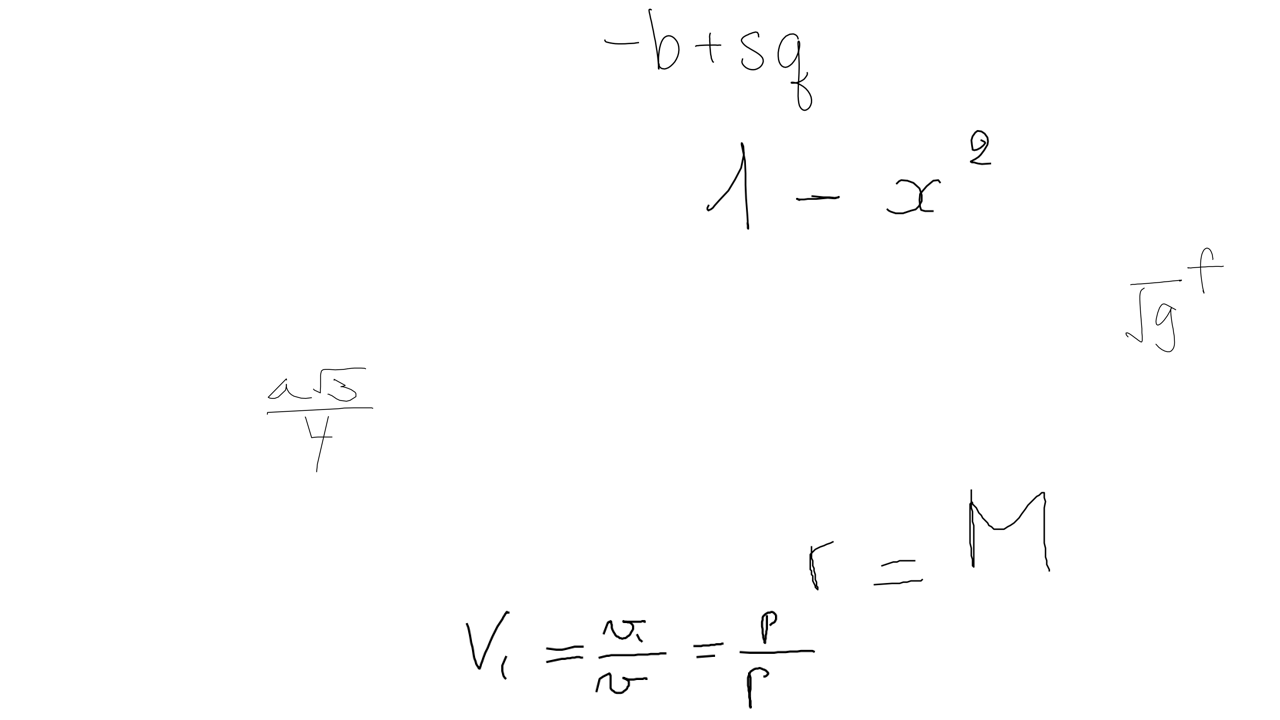 -b+sq
1 - x²
√g^f
a√3/4
r = M
V₁ = v₁/v = p/p